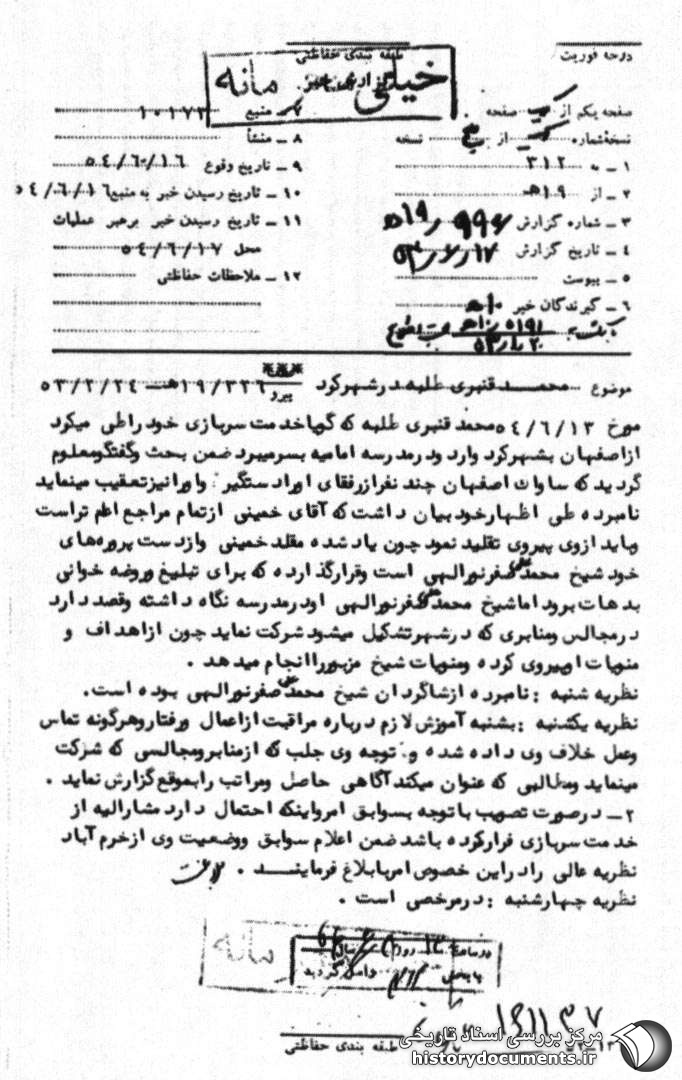 طبقه بندی حفاظتی
درجه فوریت
خیلی محرمانه
گزارش خبر
صفحه یکم از یک صفحه
نسخه شماره از نسخه
۱ ـ به ۳۱۲
۲ ـ از ۱۹ هـ
۳ ـ شماره گزارش
۴ ـ تاریخ گزارش
۵ ـ پیوست
۶ ـ گیرندگان خبر
۷ ـ منبع ۱۰۱۷۲
۸ ـ منشأ
۹ ـ تاریخ وقوع ۵۴/۶/۱۶
۱۰ ـ تاریخ رسیدن خبر به منبع ۵۴/۶/۱۶
۱۱ ـ تاریخ رسیدن خبر برهبر عملیات
محل ۵۴/۶/۱۷
۱۲ ـ ملاحظات حفاظتی
موضوع محمد قنبری طلبه در شهرکرد پیرو ۱۹/۳۲۶هـ ـ ۵۳/۲/۲۴
مورخ ۵۴/۶/۱۳ محمد قنبری طلبه که گویا خدمت سربازی خود را طی میکرد
از اصفهان بشهرکرد وارد ودر مدرسه امامیه بسر میبرد ضمن بحث وگفتگو معلوم
گردید که ساواک اصفهان چند نفر از رفقای او را دستگیر و او را نیز تعقیب مینماید
نامبرده طی اظهار خود بیان داشت که آقای خمینی از تمام مراجع اعلم تر است
وباید از وی پیروی تقلید نمود چون یاد شده مقلد خمینی و از دست پروره های
خود شیخ محمد علی صفر نورالهی است وقرار گذارده که برای تبلیغ و روضه خوانی
بدهات برود اما شیخ محمد علی صفر نورالهی او در مدرسه نگاه داشته وقصد دارد
در مجالس ومنابری که در شهر تشکیل میشود شرکت نماید چون از اهداف و
منویات او پیروی کرده ومنویات شیخ مزبور را انجام میدهد .
نظریه شنبه : نامبرده از شاگردان شیخ محمد علی صفر نورالهی بوده است.
نظریه یکشنبه : بشنبه آموزش لازم درباره مراقبت از اعمال ورفتار وهرگونه تماس
وعمل خلاف وی داده شده و توجه وی جلب که از منابر ومجالسی که شرکت
مینماید ومطالبی که عنوان میکند آگاهی حاصل ومراتب را بموقع گزارش نماید .
۲ ـ در صورت تصویب با توجه بسوابق امر واینکه احتمال دارد مشارالیه از
خدمت سربازی فرار کرده باشد ضمن اعلام سوابق ووضعیت وی از خرم آباد
نظریه عالی را در این خصوص امر بابلاغ فرمایند .
نظریه چهارشنبه : در مرخصی است .
در ساعت روز
واصل گردید
طبقه بندی حفاظتی
مرکز بررسی اسناد تاریخی
historydocuments.ir